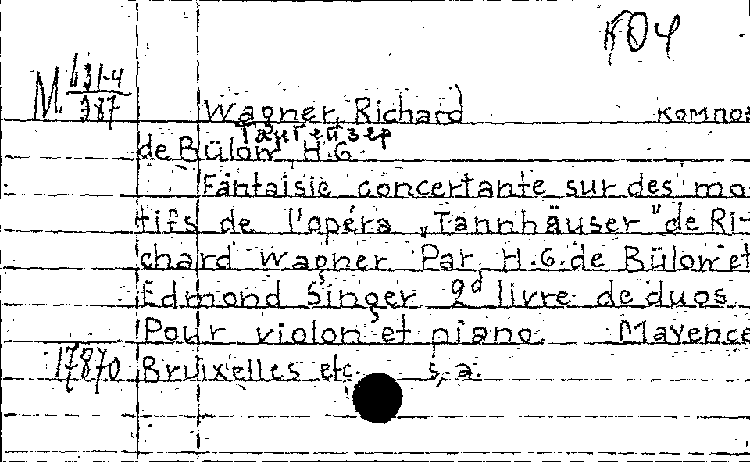 М 631-4
387
Wagner, Richard композ
Тангейзер
de Bülow H.G.
Fantaisie concertante sur des mo-
tifs de l'opéra „Tannhäuser" de Ri-
chard Wagner Par H.G.de Bülow et
Edmond Singer 2d livre de duos
Pour violon et piano. Mayence
17870 Bruixelles etc. s.a.